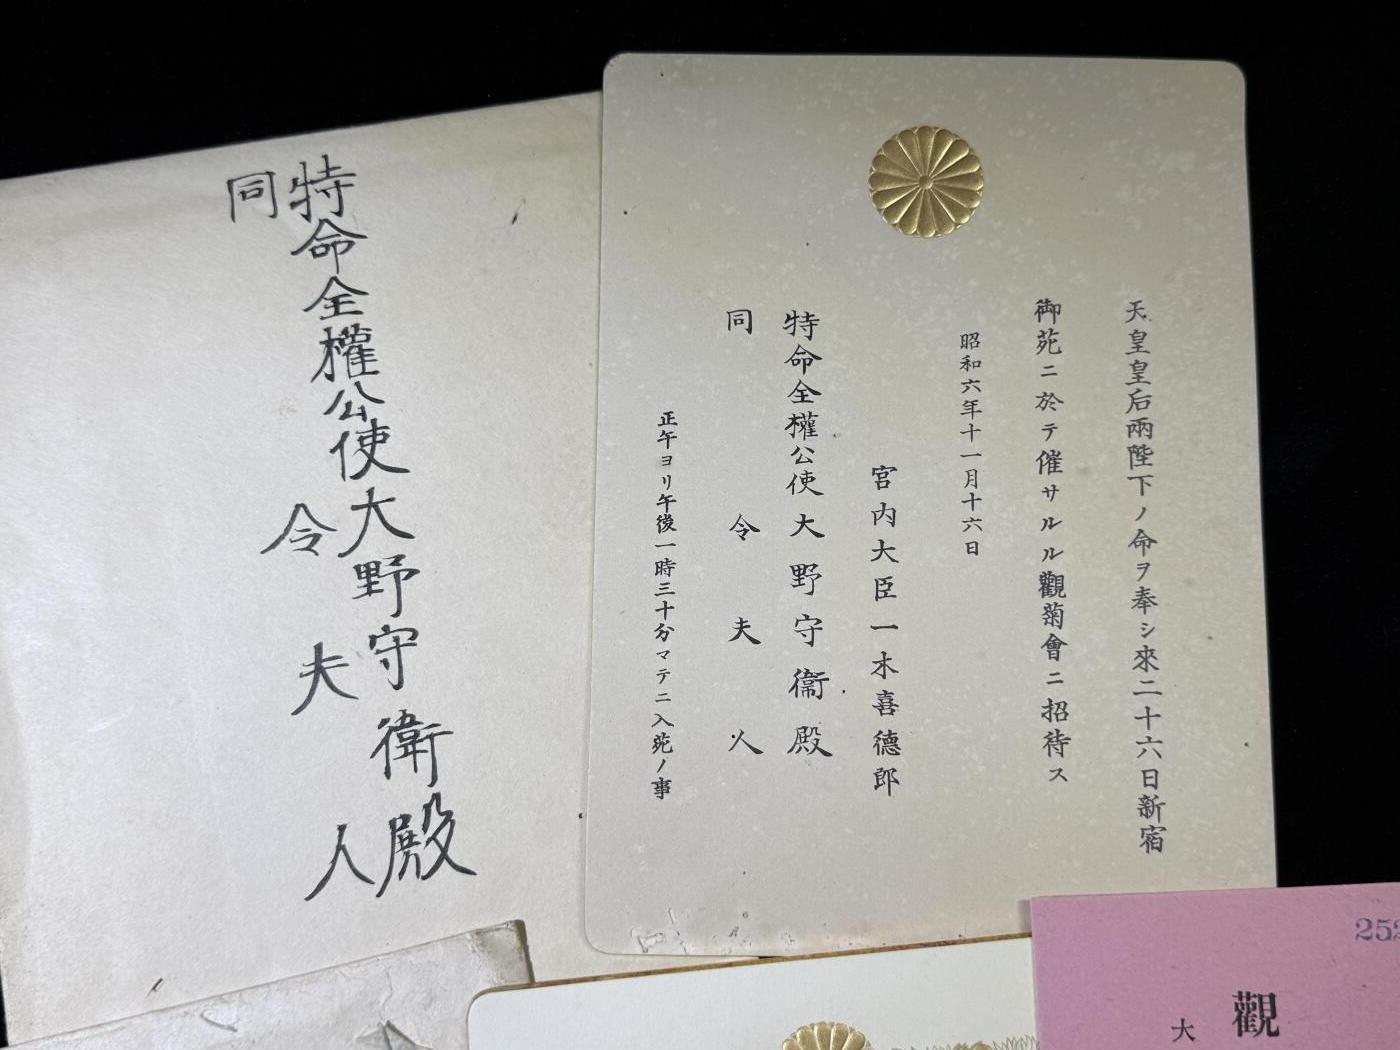 天皇皇后兩陛下ノ命ヲ奉シ來二十六日新宿
御苑ニ於テ催サルル觀菊會ニ招待ス
昭和六年十一月十六日
宮內大臣一木喜德郎
特命全權公使大野守衞殿
同令夫人
正午ヨリ午後一時三十分マテニ入苑ノ事
特命全權公使大野守衛殿
同令夫人
252
觀
大